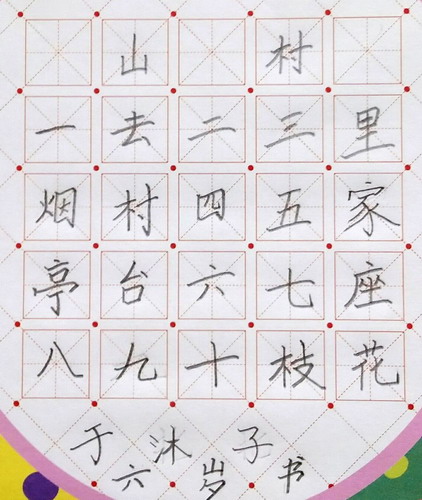 山村
一去二三里
烟村四五家
亭台六七座
八九十枝花
于沐子
六岁书